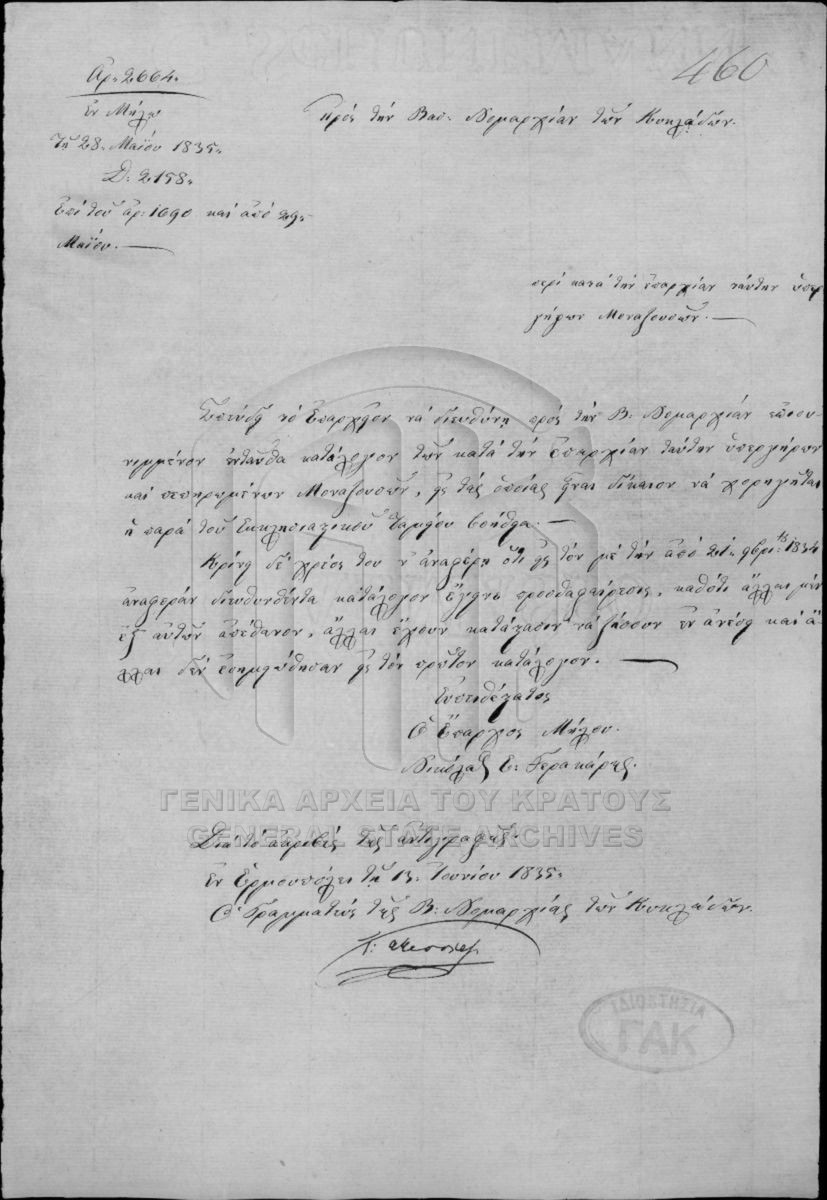 460
Ἀρ. 2664.
Ἐν Μήλῳ
Τῇ 28 Μαΐου 1835.
Δ: 2158.
Ἐπὶ τοῦ ἀρ: 1690 καὶ ἀπὸ 29
Μαΐου.
Πρὸς τὴν Βασ: Νομαρχίαν τῶν Κυκλάδων.
περὶ κατὰ τὴν ἐπαρχίαν ταύτην ὑπερ
γήρων Μοναζουσῶν.
Σπεύδει τὸ Ἐπαρχεῖον νὰ διευθύνῃ πρὸς τὴν Β: Νομαρχίαν ἐπισυ-
νημμένον ἐνταῦθα κατάλογον τῶν κατὰ τὴν ἐπαρχίαν ταύτην ὑπεργήρων
καὶ πεπηρωμένων Μοναζουσῶν, εἰς τὰς ὁποίας εἶναι δίκαιον νὰ χορηγῆται
ἡ παρὰ τοῦ Ἐκκλησιαστικοῦ Ταμείου βοήθεια.
Κρίνει δὲ χρέος του ν' ἀναφέρῃ ὅτι εἰς τὸν μὲ τὴν ἀπὸ 21 9βρί: 1834
ἀναφορὰν διευθυνθέντα κατάλογον ἔγεινε προσθαφαίρεσις, καθότι ἄλλαι μὲν
ἐξ αὐτῶν ἀπέθανον, ἄλλαι ἔχουν κατάστασιν νὰ ζήσουν ἐν ἀνέσει καὶ ἄ-
λλαι δὲν ἐσημειώθησαν εἰς τὸν πρῶτον κατάλογον.
Εὐπειθέστατος
Ὁ Ἔπαρχος Μήλου.
Νικόλαος Ε: Γερακάρης.
Διὰ τὸ ἀκριβὲς τῆς ἀντιγραφῆς.
Ἐν Ἑρμουπόλει τῇ 13 Ἰουνίου 1835.
Ὁ Γραμματεὺς τῆς Β: Νομαρχίας τῶν Κυκλάδων.
ΓΕΝΙΚΑ ΑΡΧΕΙΑ ΤΟΥ ΚΡΑΤΟΥΣ
GENERAL STATE ARCHIVES
ΙΔΙΟΚΤΗΣΙΑ
ΓΑΚ